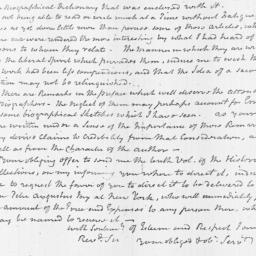 Biographical Dictionary that was enclosed with it.
not being able to read or write much at a Time without Fatigue,
as yet done little more than peruse some of those Articles, which
me were rendered the more interesting by what I had heard of
sons to whom they relate - The Manner in which they are w
the liberal Spirit which pervades them, induce me to wish th
work had been less compendious, and that the Idea of a sec
ition may not be relinquished.
There are Remarks in the preface which well deserve the attent
Biographers - the neglect of them may perhaps account for
some biographical sketches which I have seen. as your
written under a Sense of the Importance of those Remar
derives Claims to Credibility from that Consideration, a
well as from the Character of the author -
your obliging offer to send me the tenth Vol. of the Histor
llections, on my informing you where to direct it, induces
to request the favor of you to direct it to be delivered to
Peter Augustus Jay at New York, who will immediately
amount of the Price and Expenses to any person there, wh
ay be named to receive it -
with Sentim.ts of Esteem and Respect I am
Rev.d Sir your obliged & ob.t Serv.t